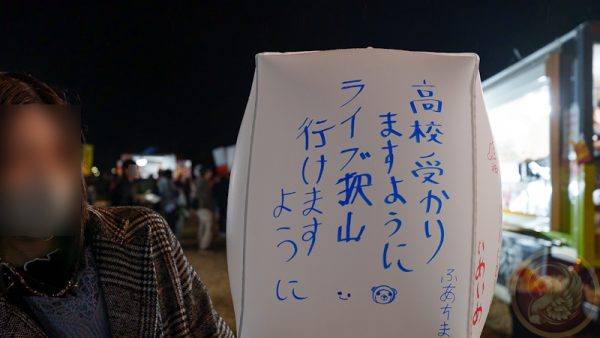 高校受かり
ますように
ライブ沢山
行けます
ように
ふあちま